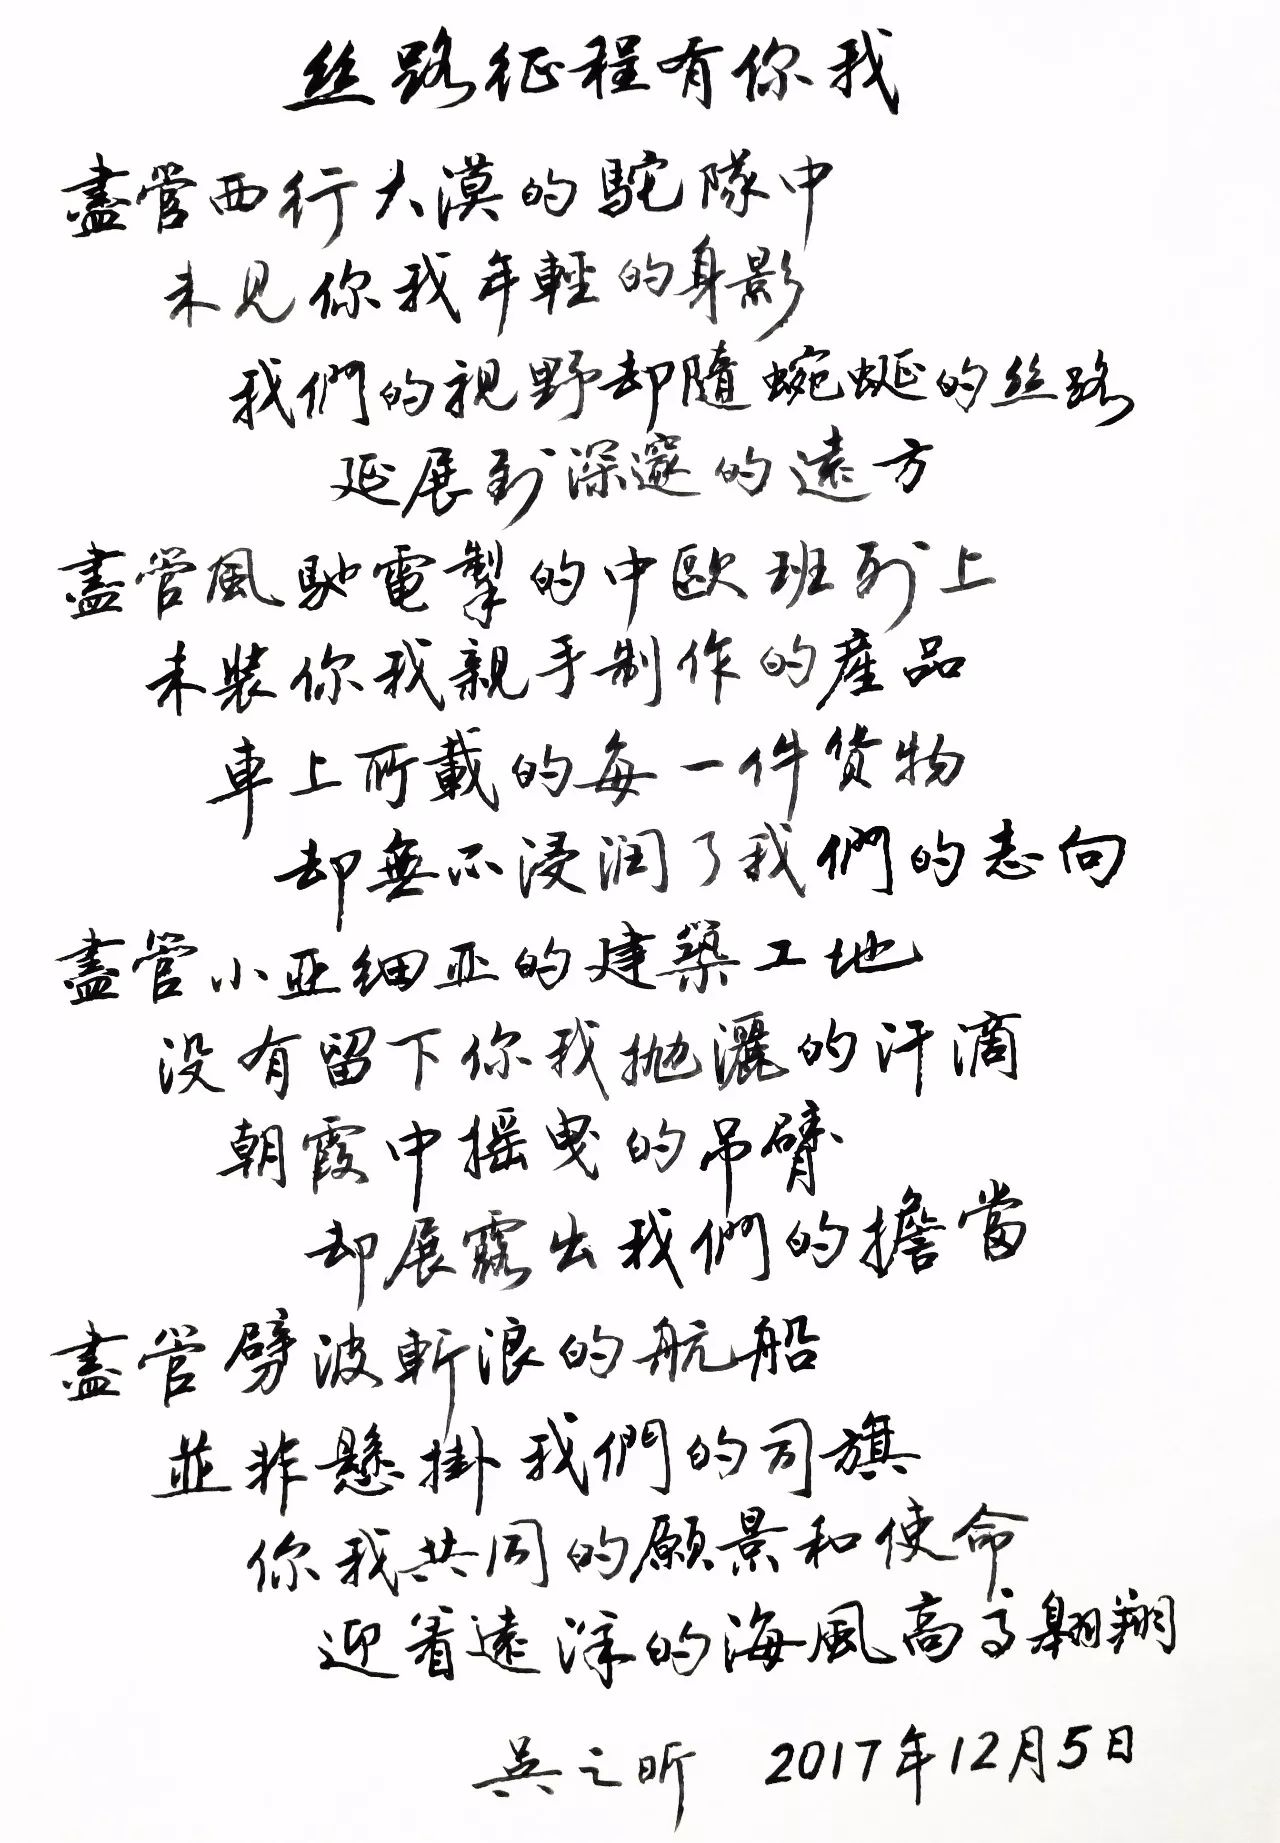 丝路征程有你我
盡管西行大漠的駝隊中
未見你我年輕的身影
我們的視野却隨蜿蜒的丝路
延展到深邃的遠方
盡管風馳電掣的中歐班列上
未裝你我親手制作的產品
車上所載的每一件货物
却無不浸润了我們的志向
盡管小亚细亚的建築工地
没有留下你我抛灑的汗滴
朝霞中摇曳的吊臂
却展露出我們的擔當
盡管劈波斬浪的航船
並非懸掛我們的司旗
你我共同的願景和使命
迎着遠洋的海風高高翱翔
吳之昕 2017年12月5日